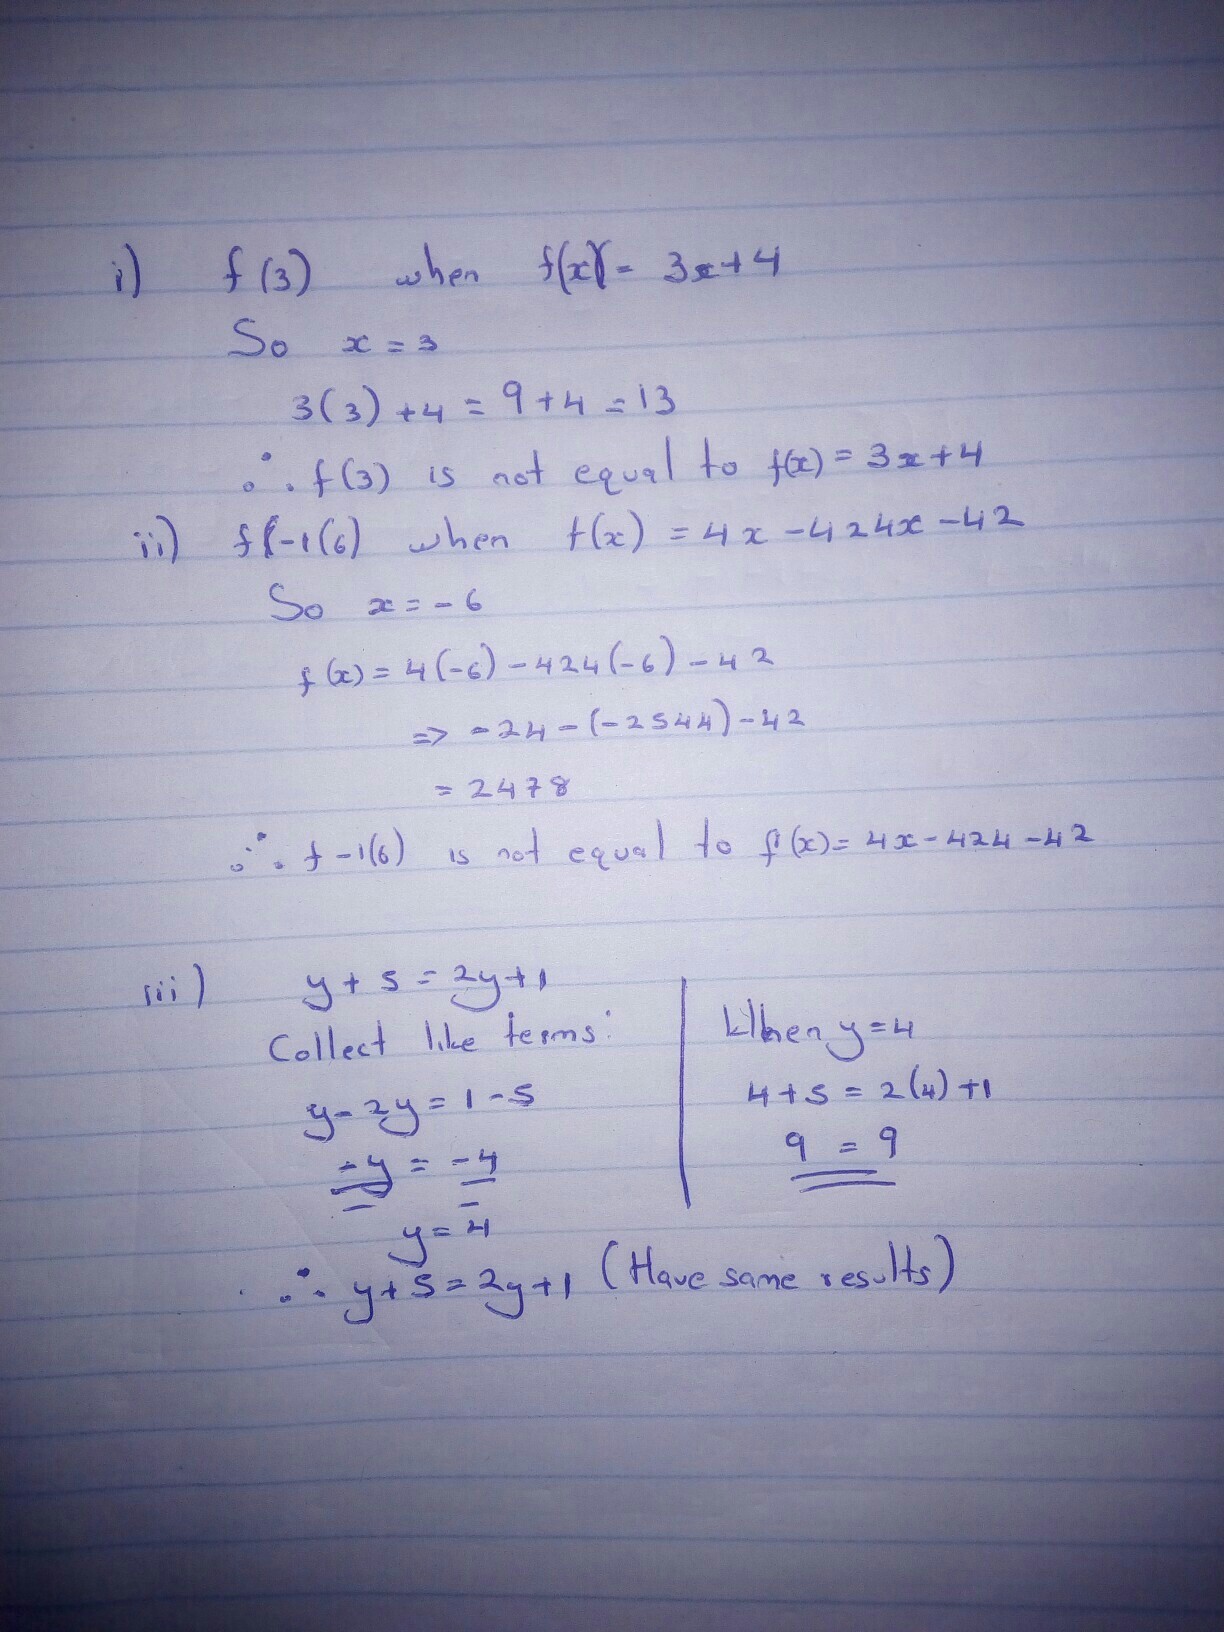 i) f(3) when f(x) = 3x+4
So x = 3
3(3) +4 = 9+4 = 13
∴ f(3) is not equal to f(x) = 3x+4
ii) f(-1(6) when f(x) = 4x -424x -42
So x = -6
f(x) = 4(-6) -424(-6) -42
=> -24 -(-2544) -42
= 2478
∴ f-1(6) is not equal to f(x) = 4x -424 -42
iii) y + 5 = 2y+1
Collect like terms:
y - 2y = 1 -5
-y = -4
- -
y = 4
When y = 4
4+5 = 2(4) +1
9 = 9
∴ y+5 = 2y+1 (Have same results)